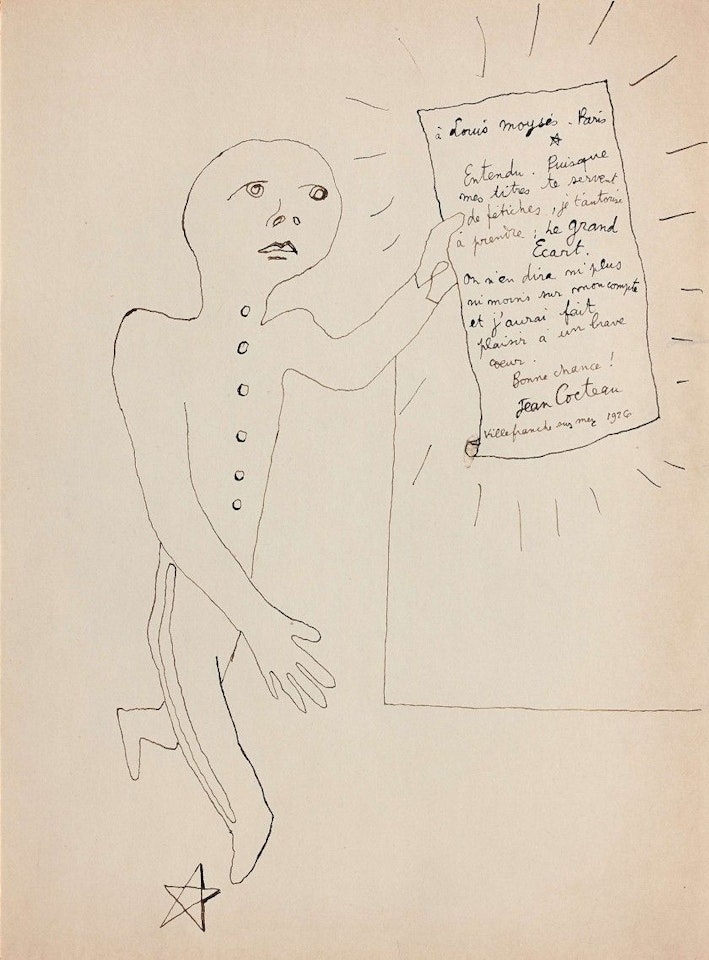 à Louis Moysès - Paris
Entendu. Puisque
mes titres te servent
de fétiches, je t'autorise
à prendre : Le Grand
Écart.
On n'en dira ni plus
ni moins sur mon compte
et j'aurai fait
plaisir à un brave
cœur.
Bonne chance !
Jean Cocteau
Villefranche sur mer 1926